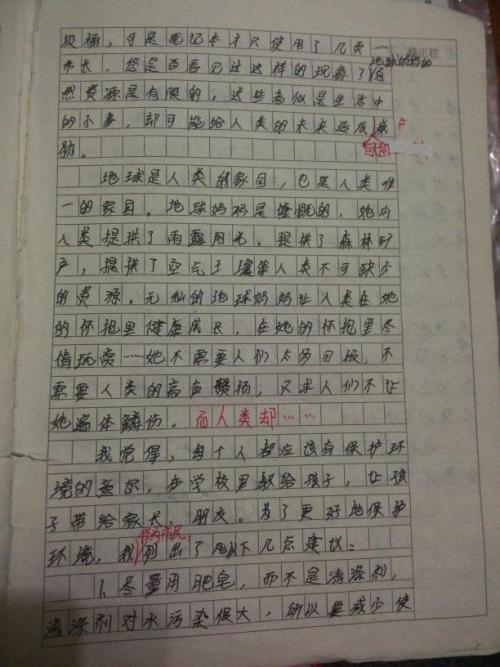 圾桶，于是笔记本才只使用了几页……
市长，您是否看见过这样的现象？自
然资源是有限的，这些看似是生活中
的小事，却可能给人类的未来造成威
胁。
地球是人类的家园，也是人类唯
一的家园。地球妈妈是慷慨的，她向
人类提供了雨露阳光，提供了森林矿
产，提供了空气土壤等人类不可缺少
的资源，无私的地球妈妈让人类在她
的怀抱里健康成长，在她的怀抱里尽
情玩耍……她不需要人们太多回报，不
需要人类的高声赞扬，只求人们不让
她遍体鳞伤。而人类却……
我觉得，每个人都应该有保护环
境的意识，在学校里教给孩子，让孩
子带给家长、朋友。为了更好地保护
环境，我列出了以下几点建议：
1、尽量用肥皂，而不是洗涤剂，
洗涤剂对水污染很大，所以要减少使